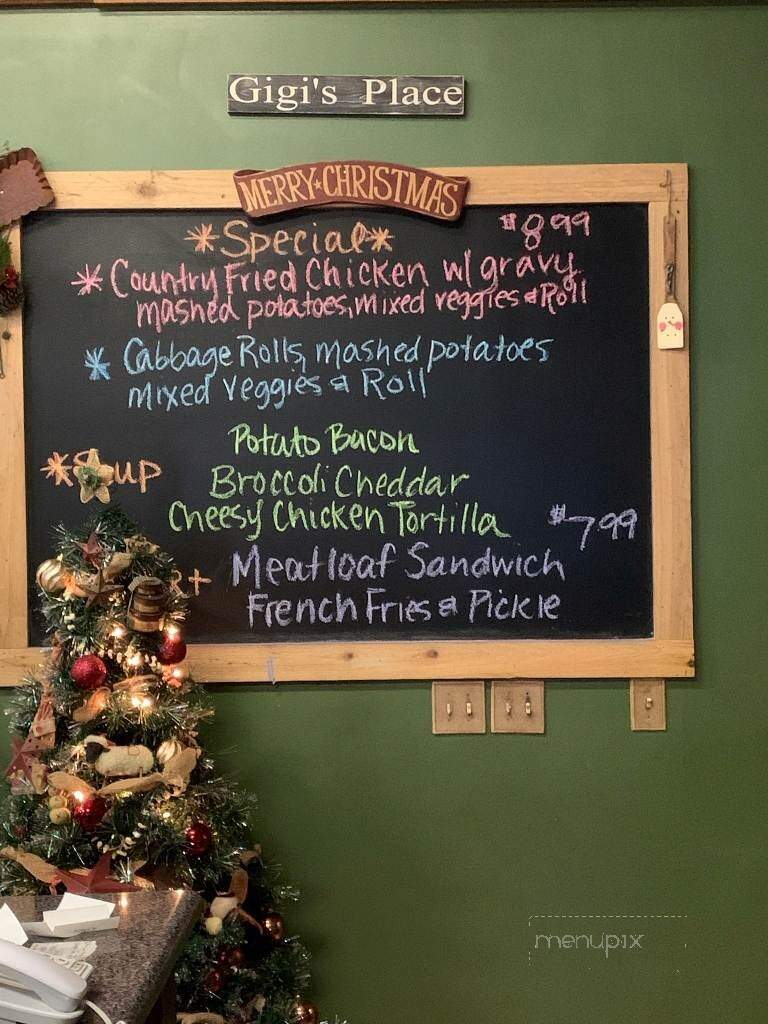 Gigi's Place
MERRY CHRISTMAS
*Special* $8.99
* Country Fried Chicken w/gravy
mashed potatoes, mixed veggies & Roll
* Cabbage Rolls, mashed potatoes
mixed veggies & Roll
Potato Bacon
*Soup Broccoli Cheddar
Cheesy Chicken Tortilla
$7.99
Meatloaf Sandwich
French Fries & Pickle
menupix